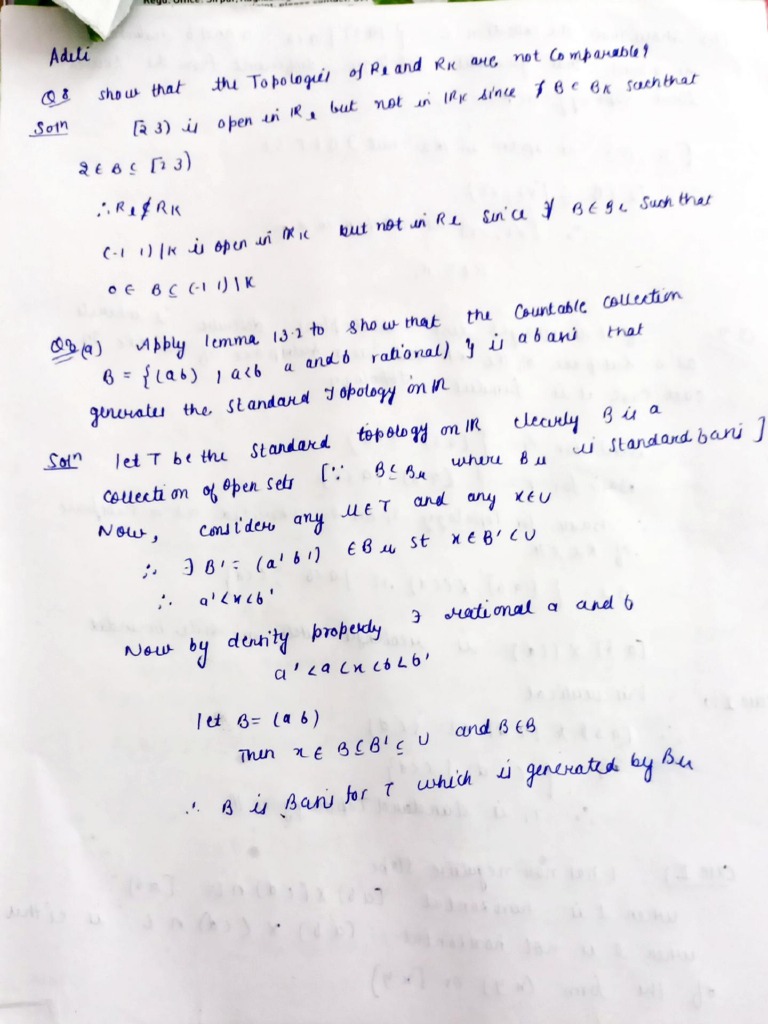 Adeli
Q8 show that the Topologies of Rl and RK are not Comparable?
Soln [2 3) is open in IRl but not in IRK since ∄ B ∈ BK such that
2 ∈ B ⊆ [2 3)
∴ Rl ⊄ RK
(-1 1)|K is open in IRK but not in Rl Since ∄ B ∈ Bl such that
0 ∈ B ⊆ (-1 1)|K
Q8 (a) Apply lemma 13.2 to show that the Countable collection
B = {(a b) | a<b a and b rational)} is a basis that
generates the standard Topology on IR
Soln let T be the standard topology on IR clearly B is a
collection of open sets [∵ B ⊂ Bu where Bu is standard basis]
Now, consider any U ∈ T and any x ∈ U
∴ ∃ B' = (a' b') ∈ Bu st x ∈ B' ⊂ U
∴ a' < x < b'
Now by density property ∃ rational a and b
a' < a < x < b < b'
let B = (a b)
Then x ∈ B ⊆ B' ⊆ U and B ∈ B
∴ B is Basis for T which is generated by Bu